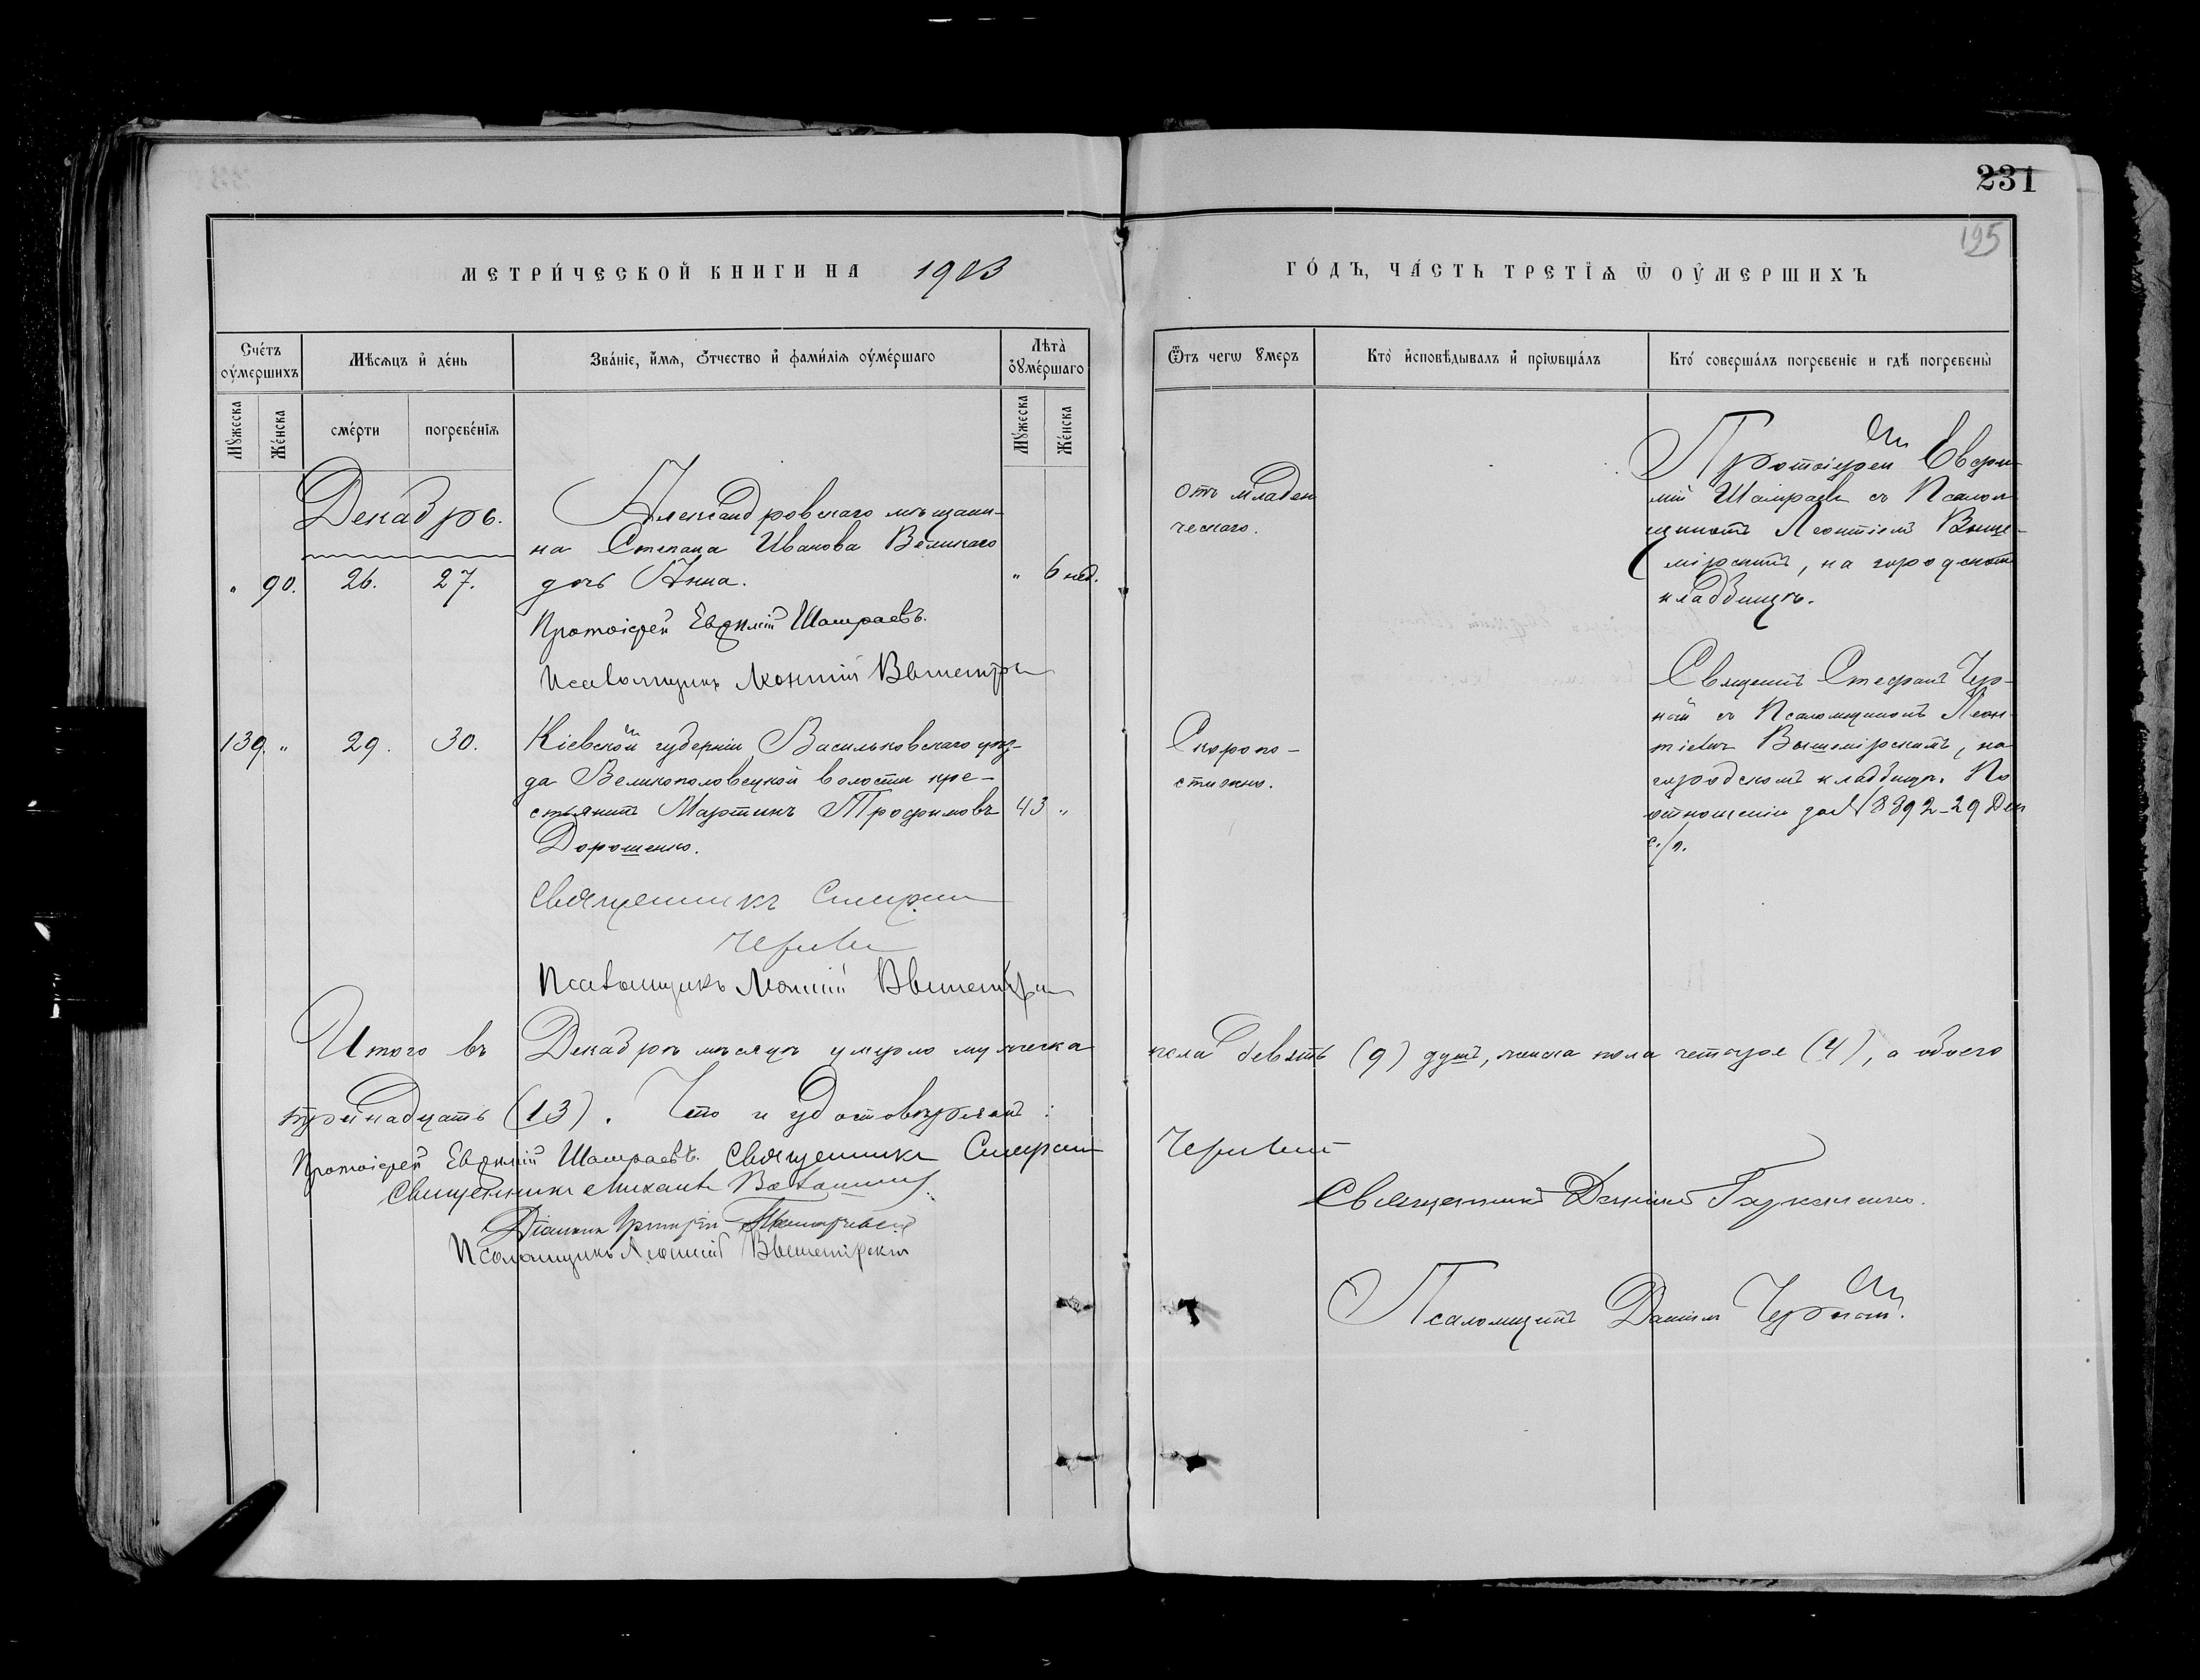 231
195
МЕТРИ́ЧЕСКОЙ КНИГИ НА 1903
ГО́ДЪ, ЧА́СТЬ ТРЕТІѦ Ѿ ОУ҆МЕРШИХЪ
Сче́тъ оу҆́мершихъ
Мѣсѧцъ и҆ де́нь
Зва́нїе, и҆́мѧ, ѻ҆́тчество и҆ фами́лїѧ оу҆ме́ршаго
Лѣта̀ оу҆ме́ршаго
Ѿ чегѡ ᲂумеръ
Кто̀ и҆сповѣ́дывалъ и҆ прїѡбща́лъ
Кто́ соверша́лъ погребенїе и гдѣ̀ погребены̀
Мꙋ́жеска
Же́нска
сме́рти
погребе́нїѧ
Мꙋ́жеска
Же́нска
Декабрь.
Александровскаго мѣщани-
на Степана Иванова Великаго
" 90. 26. 27. дочь Анна. " 6 нед.
Протоіерей Евфимій Шамраевъ.
Псаломщикъ Леонтій
отъ младен
ческаго.
Протоіерей Евфи-
мій Шамраевъ съ Псалом
щикомъ Леонтіемъ Выше-
мірскимъ, на городскомъ
кладбищѣ.
139. " 29. 30. Кіевской губерніи Васильковскаго уѣз-
да Великополовецкой волости кре-
стьянинъ Мартинъ Трофимовъ 43 "
Дорошенко.
Священникъ Стефан
Черный
Псаломщикъ Леонтій
Скоропо-
стижно.
Священникъ Стефанъ Чер-
ный съ Псаломщикомъ Леон-
тіемъ Вышемірскимъ, на
городскомъ кладбищѣ. По
отношенію за № 8892-29 Дек
с./г.
Итого въ Декабрѣ мѣсяцѣ умерло мужеска пола девять (9) душъ, женска пола четыре (4), а обоего
тринадцать (13). Что и удостовѣряемъ:
Протоіерей Евфимій Шамраевъ. Священникъ Стефан Черный
Священникъ Михаилъ
Священникъ Даніилъ
Діаконъ Григорій
Псаломщикъ Леонтій Вышемірскій
Псаломщикъ Даніилъ Черный.